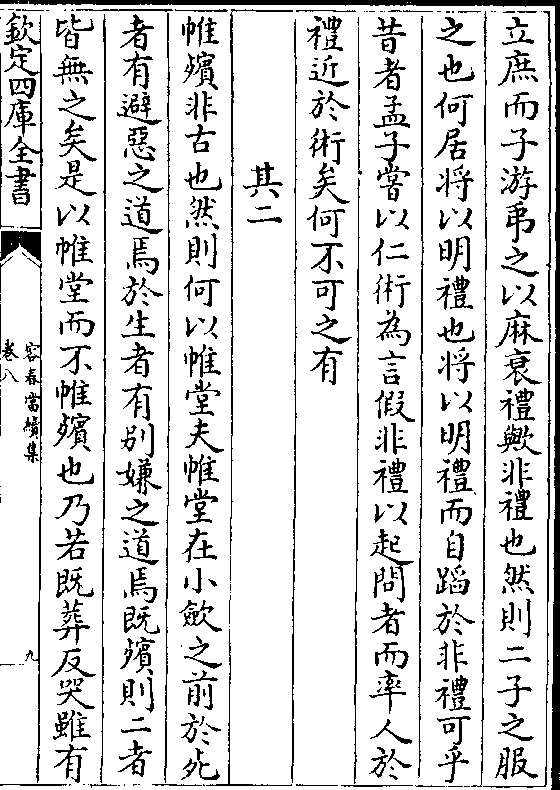 立庶而子游弔之以麻衰禮歟非禮也然則二子之服
之也何居将以明禮也将以明禮而自蹈於非禮可乎
昔者孟子嘗以仁術為言假非禮以起問者而率人於
禮近於術矣何不可之有
其二
帷殯非古也然則何以帷堂夫帷堂在小斂之前於死
者有避惡之道焉於生者有别嫌之道焉既殯則二者
皆無之矣是以帷堂而不帷殯也乃若既葬反哭雖有
欽定四庫全書
容春堂續集
卷八
九